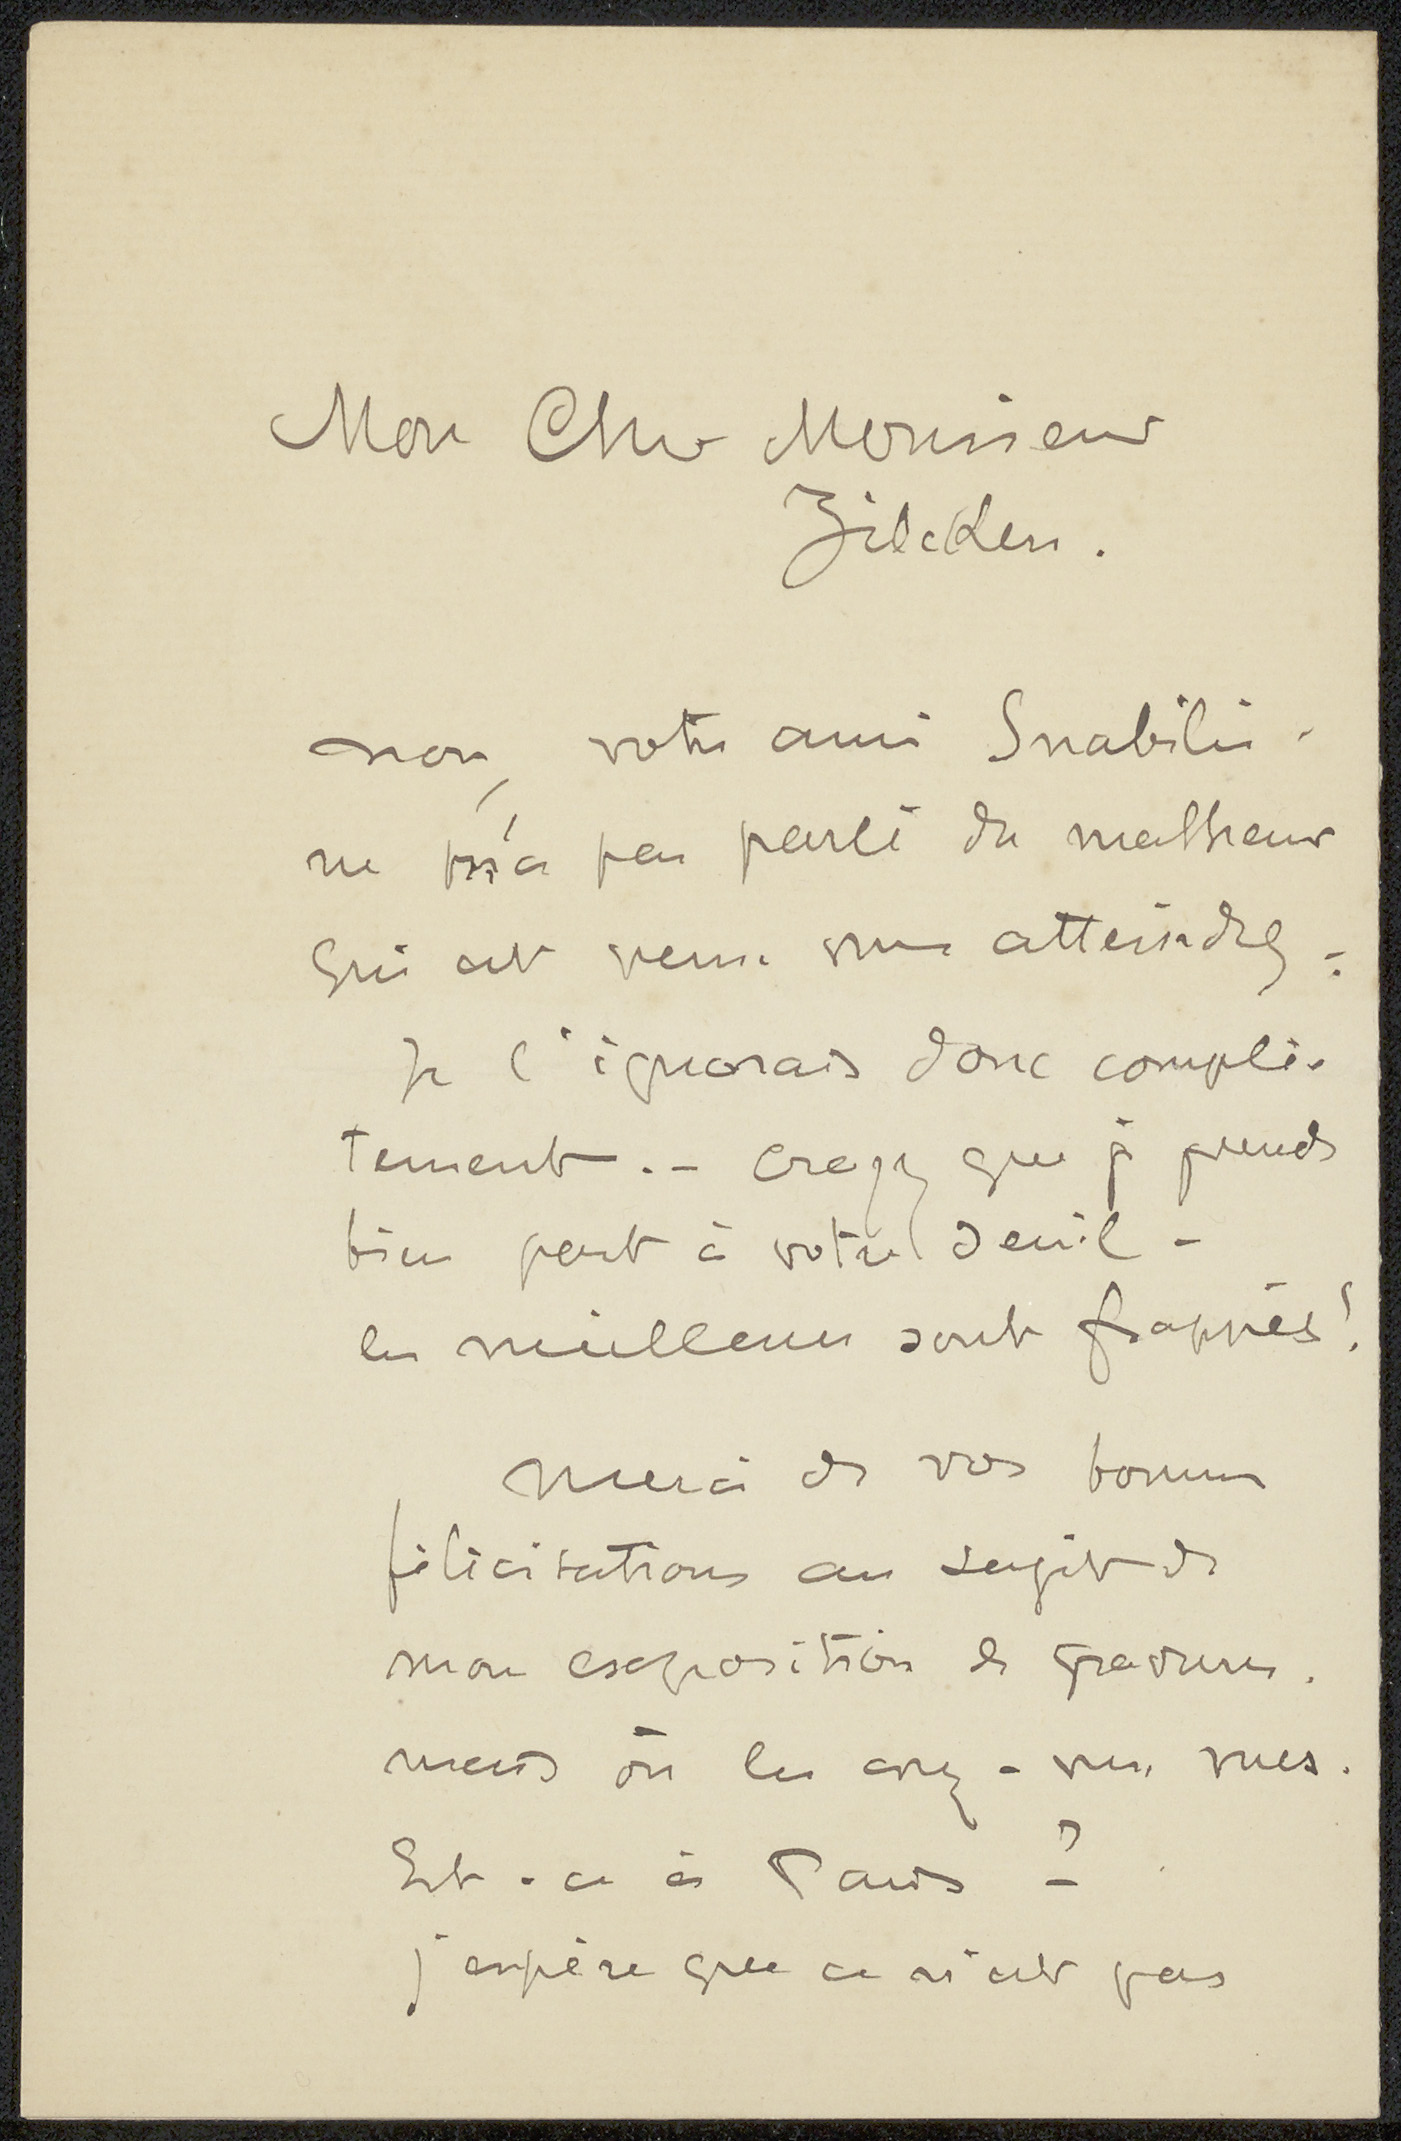 Mon Cher Monsieur
Zilcken.
non, votre ami Snabilié -
ne m'a pas parlé du malheur
qui est venu vous atteindre -.
Je l'ignorais donc complè-
tement. - croyez que je prends
bien part à votre deuil -
les meilleurs sont frappés!
merci de vos bonnes
félicitations au sujet de
mon exposition de gravures.
mais où les avez-vous vues.
Est-ce à Paris ?
j'espère que ce n'est pas